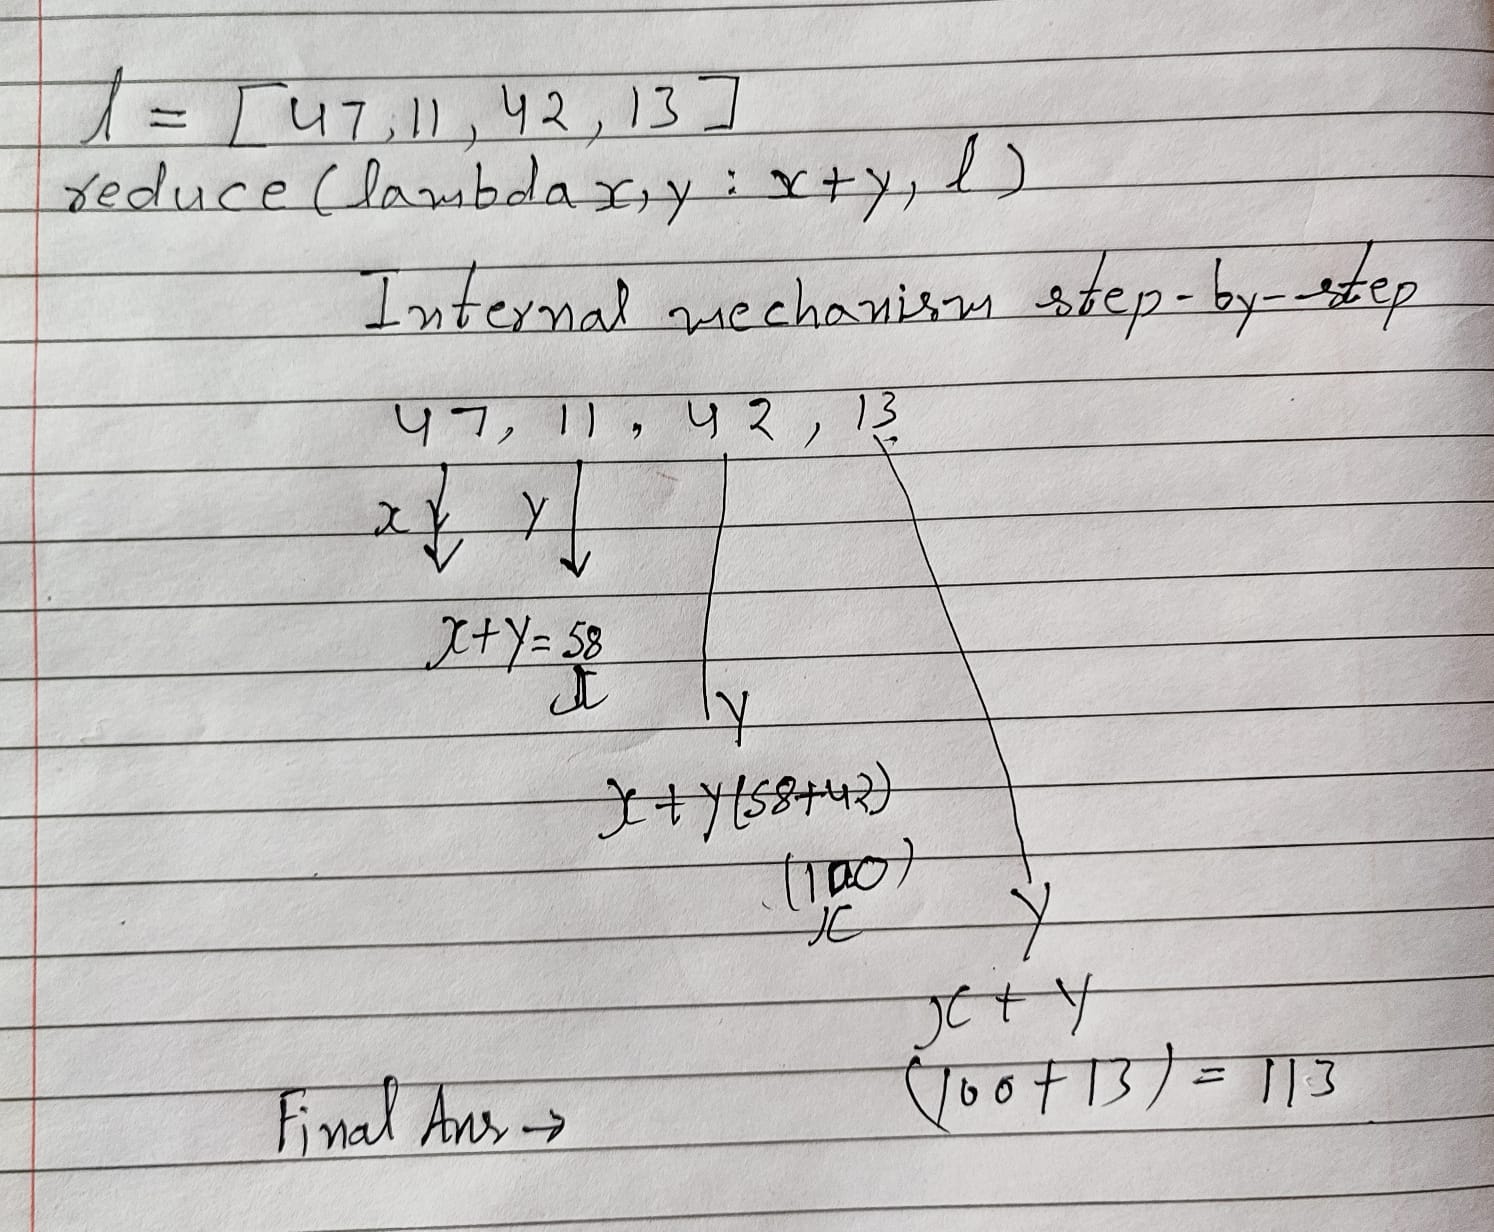 l = [47, 11, 42, 13]
reduce (lambda x, y : x+y, l)
Internal mechanism step-by-step
47, 11, 42, 13
x y
x+y = 58
x y
x + y (58+42)
(100)
x y
x + y
(100 + 13) = 113
Final Ans →